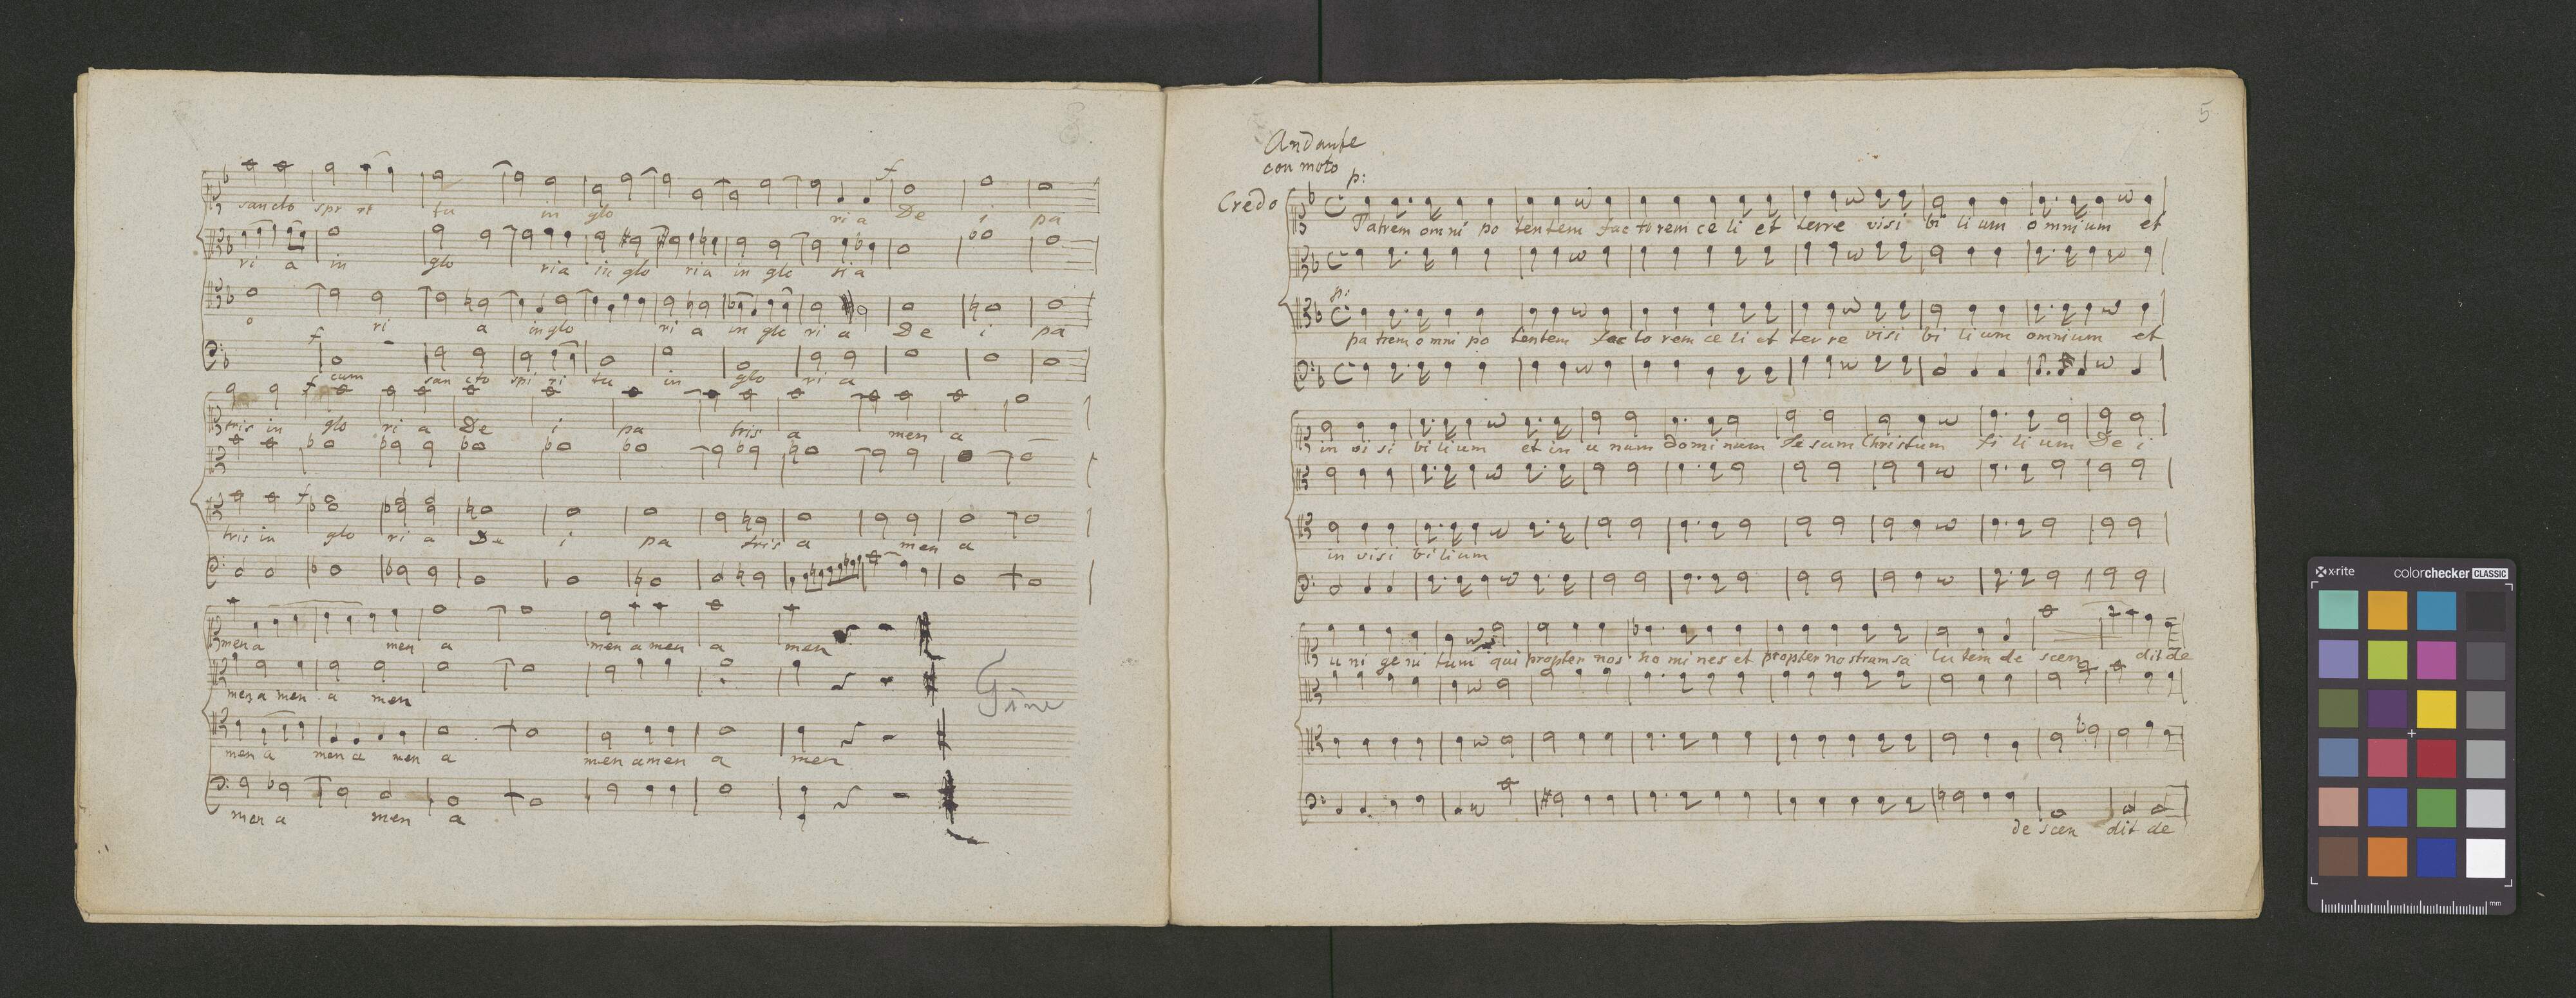 f
sancto spi ri tu in glo ria De i pa
ri a in glo ria in glo ria in glo ria
o ri a in glo ri a in glo ri a De i pa
f
cum san cto spi ri tu in glo ri a
f
tris in glo ri a De i pa tris a men a
f
tris in glo ri a De i pa tris a men a
men a men a men a men a men
men a men a men
Fine
men a men a men a men a men a men
men a men a
5
Andante
con moto
p:
Credo
Patrem omni po tentem fac torem ce li et terre visi bi li um omnium et
p:
pa trem omni po tentem fac to rem ce li et ter re visi bi li um omnium et
in vi si bi lium et in u num dominum Je sum Christum fi li um De i
in visi bi lium
u ni geni tum qui propter nos ho mi nes et propter nostram sa lu tem de scen dit de
de scen dit de
x-rite
colorchecker CLASSIC
mm